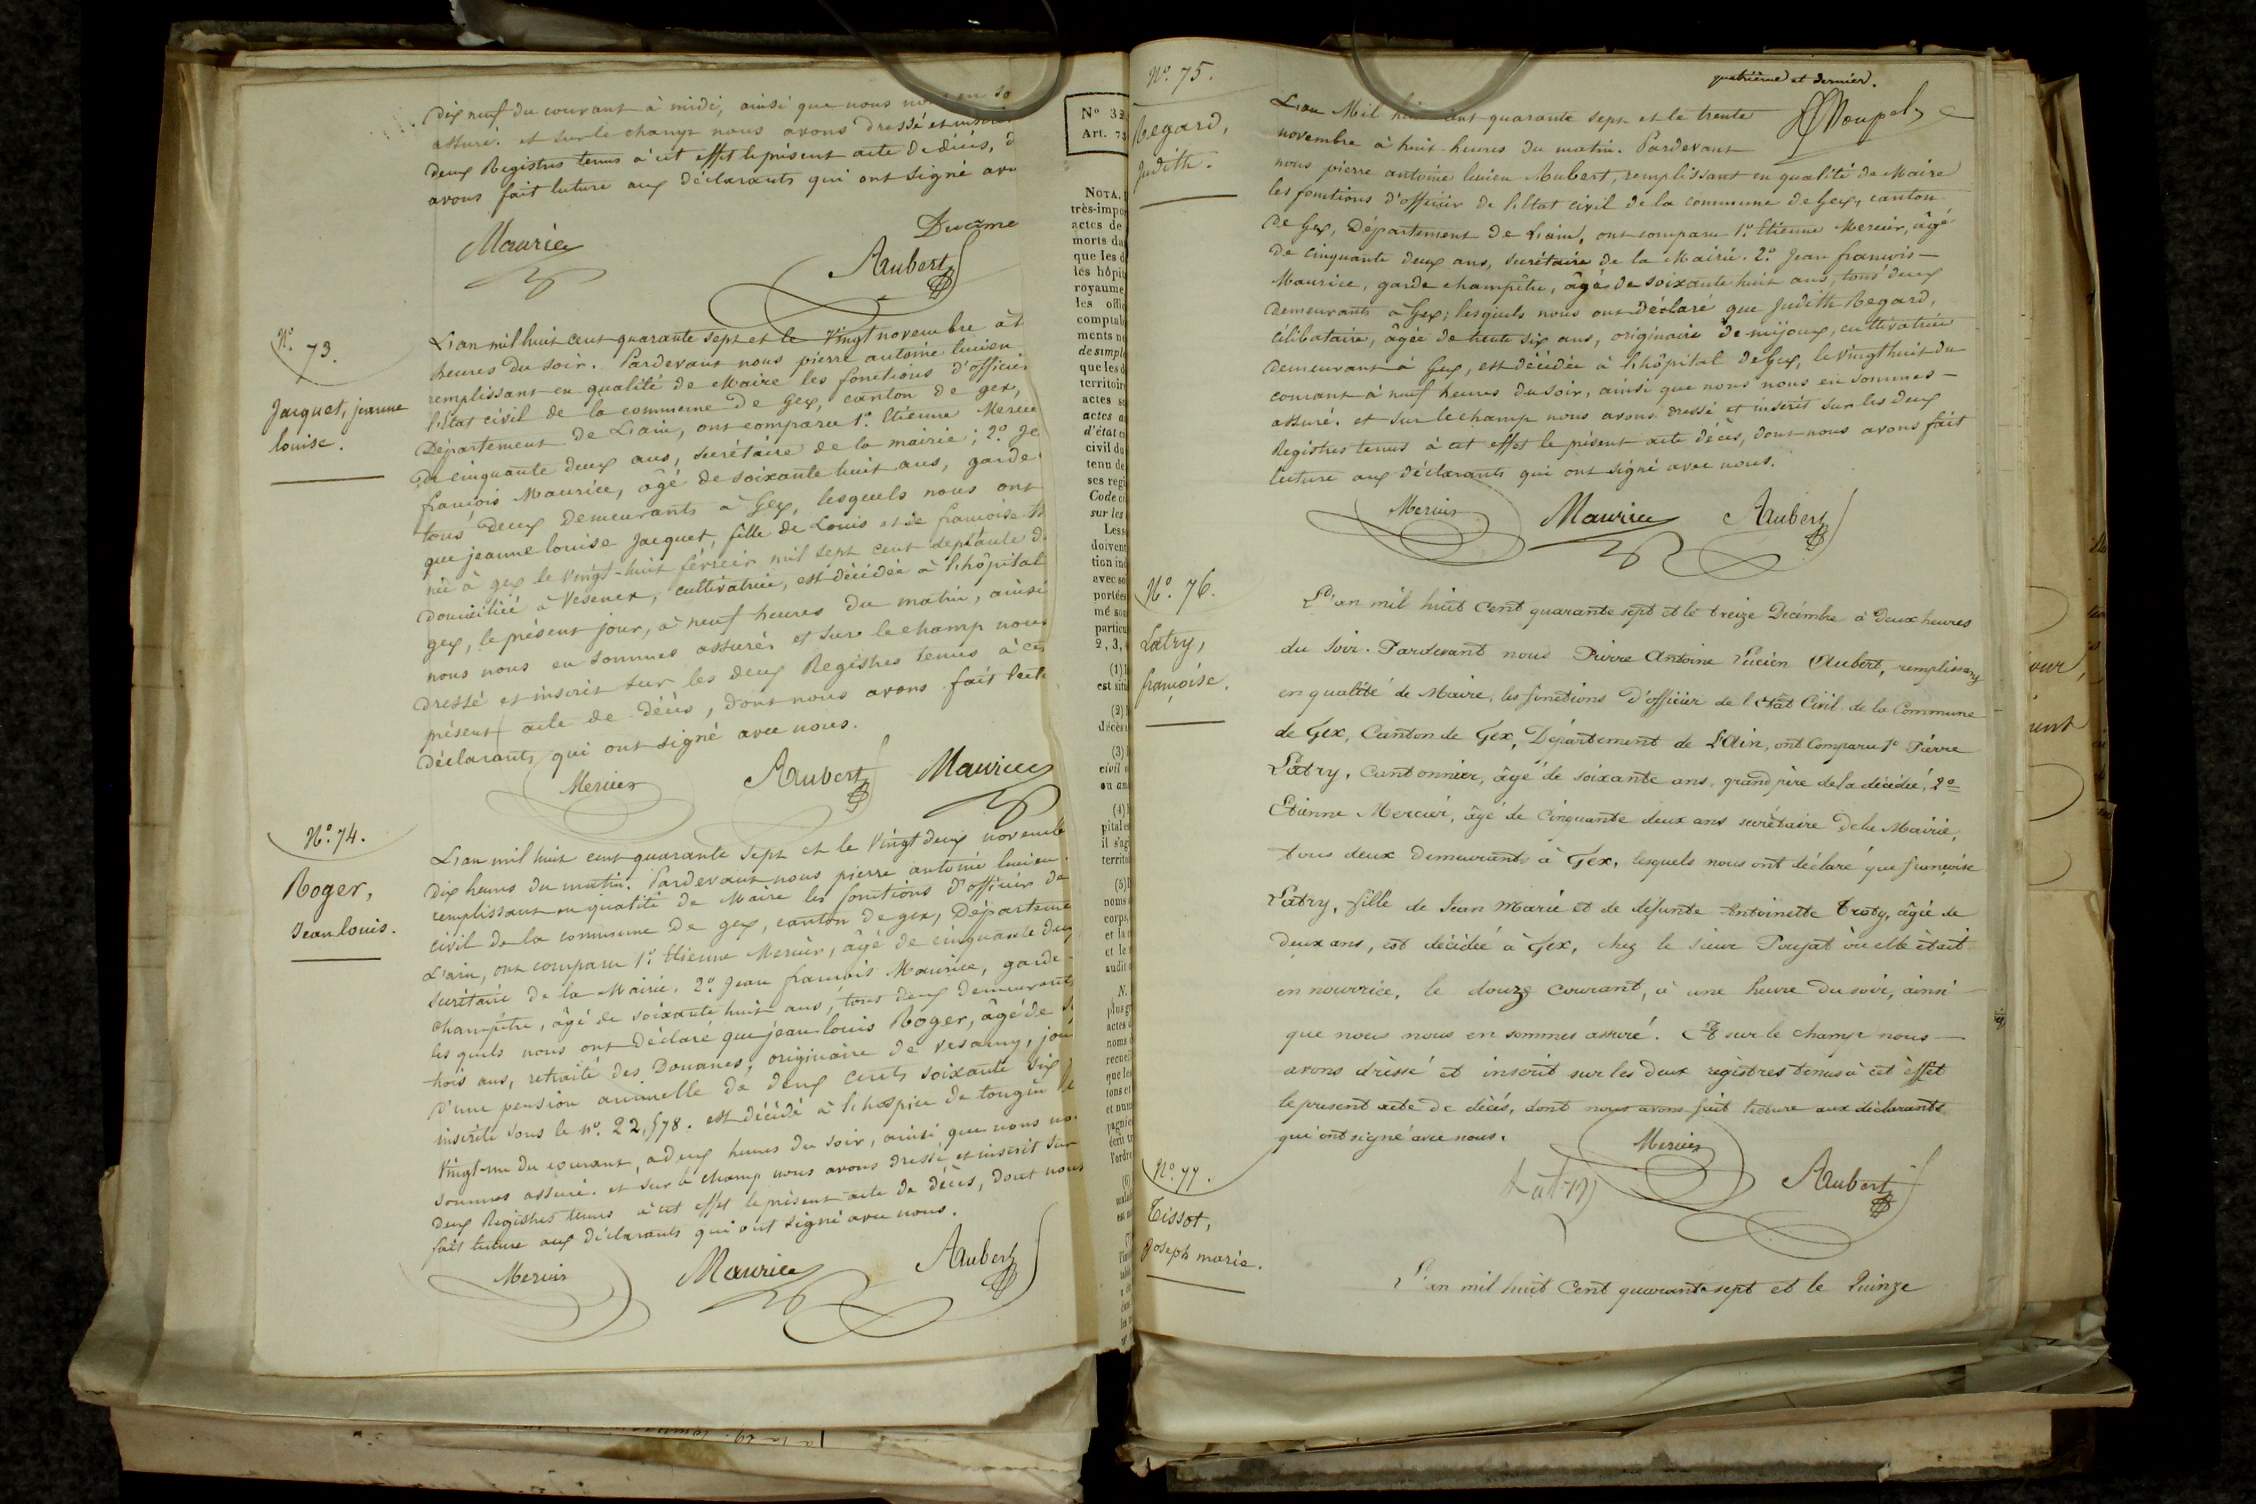 Dix neuf du courant à midi, ainsi que nous
assuré. et sur le champ nous avons dressé et inscrit
deux Registres tenus à cet effet le présent acte de décès, d
avons fait lecture aux déclarants qui ont signé av
Ducrème
Maurice
Aubert
N.º 73.
Jacquet, jeanne
louise.
L'an mil huit cent quarante sept et le vingt novembre à
heures du soir. Pardevant nous pierre antoine lucien
remplissant en qualité de Maire les fonctions d'officier
l'état civil de la commune de Gex, canton de gex,
Département de L'ain, ont comparu 1.º Etienne Mercie
de cinquante deux ans, secrétaire de la mairie; 2.º Je
françois Maurice, âgé de soixante huit ans, garde
tous deux demeurants à Gex, lesquels nous ont
que jeanne louise Jacquet, fille de Louis et de françoise
née à gex le vingt-huit février mil sept cent septante d
domiciliée à Vesenex, cultivatrice, est décédée à l'hôpital
gex, le présent jour, à neuf heures du matin, ainsi
nous nous en sommes assurés et sur le champ nous
dressé et inscrit sur les deux Registres tenus à cet
présent acte de décès, dont nous avons fait lect
déclarants qui ont signé avec nous.
Mercier Aubert Maurice
N.º 74.
Roger,
Jean louis.
L'an mil huit cent quarante sept et le vingt deux novembre
dix heures du matin. Pardevant nous pierre antoine lucien
remplissant en qualité de Maire les fonctions d'officier de
civil de la commune de gex, canton de gex, Départeme
L'ain, ont comparu 1.º Etienne Mercier, âgé de cinquante deux
secrétaire de la Mairie. 2.º Jean françois Maurice, garde
champêtre, âgé de soixante huit ans, tous deux demeurants
lesquels nous ont déclaré que jean louis Roger, âgé de
trois ans, retraité des Douanes, originaire de vesancy, joui
d'une pension annuelle de deux cents soixante six
inscrite sous le n.º 22,578. est décédé à l'hospice de tougin le
vingt-un du courant, à deux heures du soir, ainsi que nous no
sommes assuré. et sur le champ nous avons dressé et inscrit sur
deux Registres tenus à cet effet le présent acte de décès, dont nous
fait lecture aux déclarants qui ont signé avec nous.
Mercier Maurice Aubert
Nº 32
Art. 78
NOTA.
très-impo
actes de
morts da
que les d
les hôpit
royaume,
les offi
comptab
ments n
de simpl
que les d
territoir
actes
actes a
d'état c
civil du
tenu de
ses regi
Code ci
sur les
Les
doivent
tion in
avec so
portées
mé son
particu
2, 3,
(1)
est situ
(2)
décès
(3)
civil
ou an
(4)
pitale
il s'ag
territo
(5)
noms
corps,
et la
et le
audit
N.
plus g
actes
noms
recuei
que les
tons et
et num
pagnie
écrit
l'ordre
N.º 75.
Regard,
Judith.
quatrième et dernier.
L'an Mil huit cent quarante sept et le trente
novembre à huit heures du matin. Pardevant
nous pierre antoine lucien Aubert, remplissant en qualité de Maire
les fonctions d'officier de l'Etat civil de la commune de Gex, canton
de Gex, Département de L'ain, ont comparu 1.º Etienne Mercier, âgé
de cinquante deux ans, secrétaire de la Mairie. 2.º Jean françois
Maurice, garde champêtre, âgé de soixante huit ans, tous deux
demeurants à Gex; lesquels nous ont déclaré que Judith Regard,
célibataire, âgée de trente six ans, originaire de mijoux, cultivatrice
demeurant à Gex, est décédée à l'hôpital de Gex, le vingt huit du
courant à neuf heures du soir, ainsi que nous nous en sommes
assuré. et sur le champ nous avons dressé et inscrit sur les deux
Registres tenus à cet effet le présent acte décès, dont nous avons fait
lecture aux déclarants qui ont signé avec nous.
Mercier Maurice Aubert
N.º 76.
Latry,
françoise.
L'an mil huit cent quarante sept et le treize Décembre à deux heures
du soir. Pardevant nous Pierre Antoine Lucien Aubert, remplissant
en qualité de Maire, les fonctions d'officier de l'état Civil de la Commune
de Gex, Canton de Gex, Département de L'Ain, ont Comparu 1.º Pierre
Latry, Cantonnier, âgé de soixante ans, grand père de la décédée, 2.º
Etienne Mercier, âgé de Cinquante deux ans secrétaire de la Mairie,
tous deux demeurants à Gex, lesquels nous ont déclaré que françoise
Latry, fille de Jean Marie et de défunte Antoinette Traty, âgée de
deux ans, est décédée à Gex, chez le sieur Poujat où elle était
en nourrice, le douze Courant, à une heure du soir, ainsi
que nous nous en sommes assuré. Et sur le champ nous
avons dressé et inscrit sur les deux régistres tenus à cet effet
le present acte de décès, dont nous avons fait lecture aux déclarants
qui ont signé avec nous.
Mercier
Latry Aubert
N.º 77.
Tissot,
Joseph marie.
L'an mil huit Cent quarante sept et le Quinze